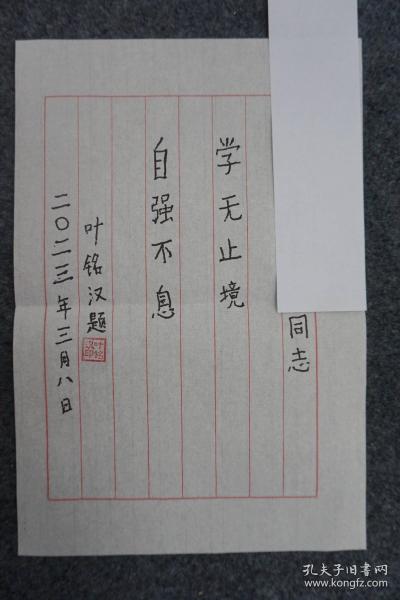 同志
学无止境
自强不息
叶铭汉题
叶铭汉印
二〇二三年三月八日
孔夫子旧书网
www.kongfz.com